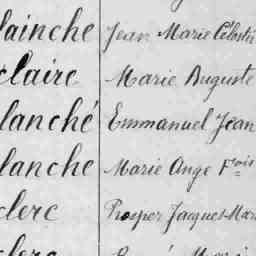 lainche Jean Marie Célestin
claire Marie Auguste
lanché Emmanuel Jean
lanche Marie Ange Fçois
clerc Prosper Jacques Mar
clerc